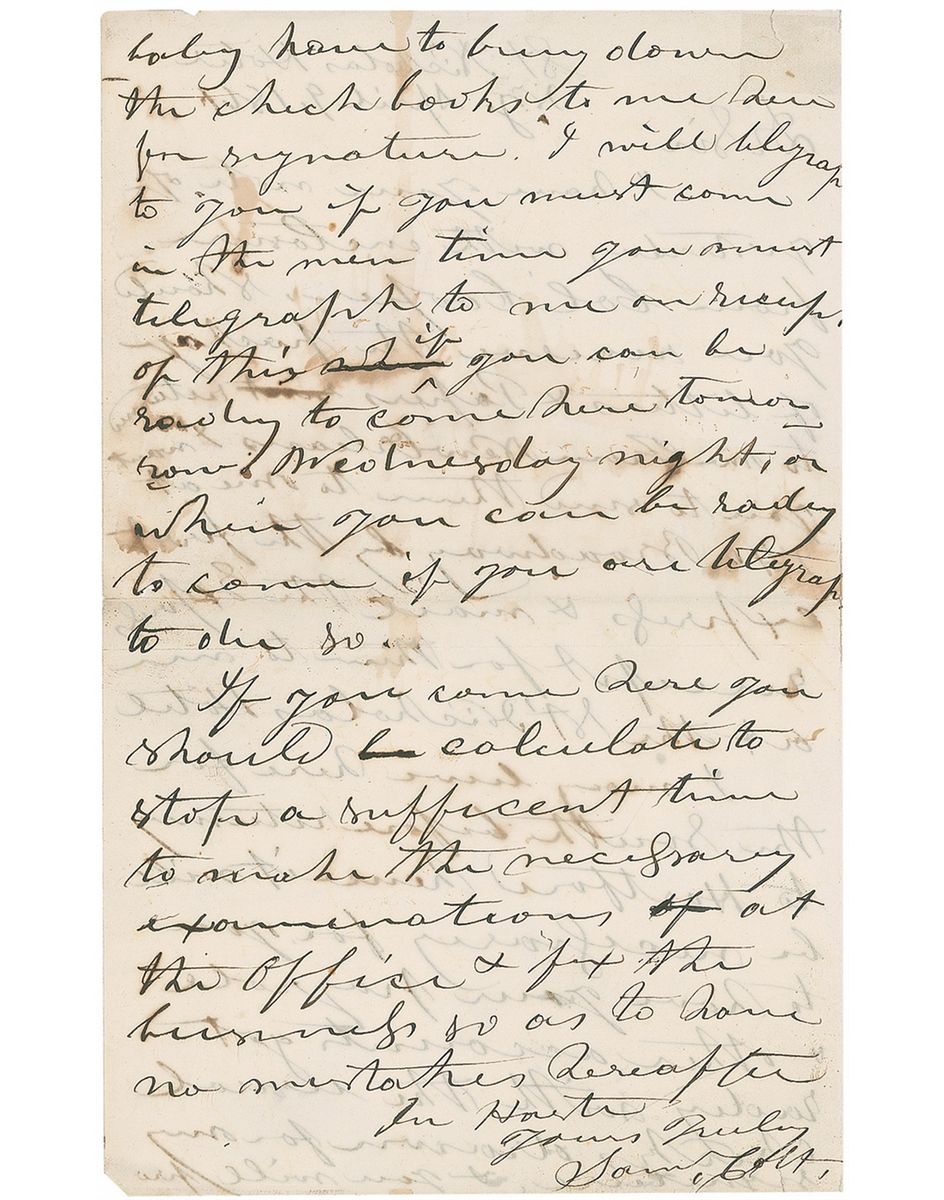 bably have to bring down
the check books to me here
for signature. I will telegrap
to you if you must come
in the mean time you must
telegraph to me on receip,
of this if you can be
ready to come here tomor
row Wednesday night, or
when you can be ready
to come if you are telegrap
to doe so.
If you come here you
should calculate to
stop a sufficent time
to make the necessary
examenations at
the Office & fix the
business so as to have
no mistakes hereafter
In Haste
Yours Truly
Saml Colt,